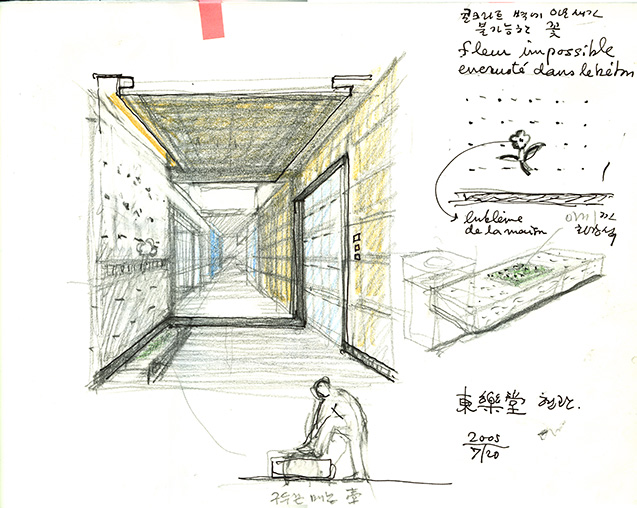 콘크리트 벽에 아로새긴
불가능한 꽃
fleur impossible
encrusté dans le béton
l'emblème
de la maison
이끼 / 낀
東樂堂 현관.
2005
7/20
구두끈 매는 堂